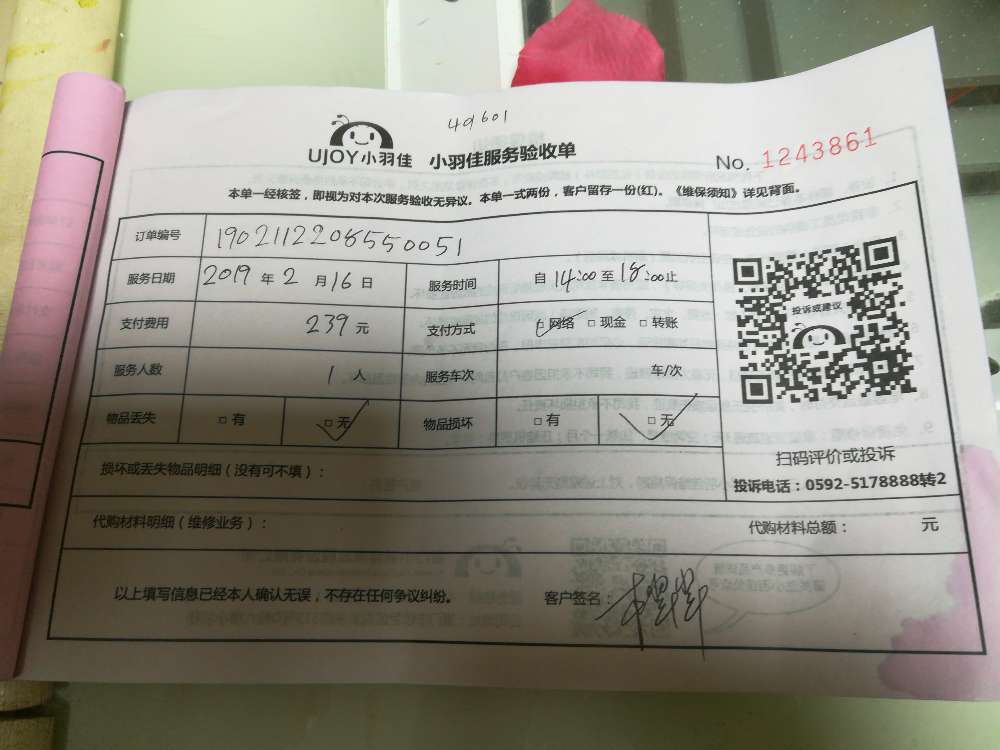 49601
UJOY小羽佳 小羽佳服务验收单 No. 1243861
本单一经核签，即视为对本次服务验收无异议。本单一式两份，客户留存一份(红)。《维保须知》详见背面。
订单编号 1902112208550051
服务日期 2019 年 2 月 16 日 服务时间 自 14:00 至 18:00 止
支付费用 239 元 支付方式 □网络 □现金 □转账
服务人数 1 人 服务车次 车/次
物品丢失 □有 □无 物品损坏 □有 □无
投诉或建议
扫码评价或投诉
投诉电话：0592-5178888转2
损坏或丢失物品明细（没有可不填）：
代购材料明细（维修业务）： 代购材料总额： 元
以上填写信息已经本人确认无误，不存在任何争议纠纷。 客户签名：